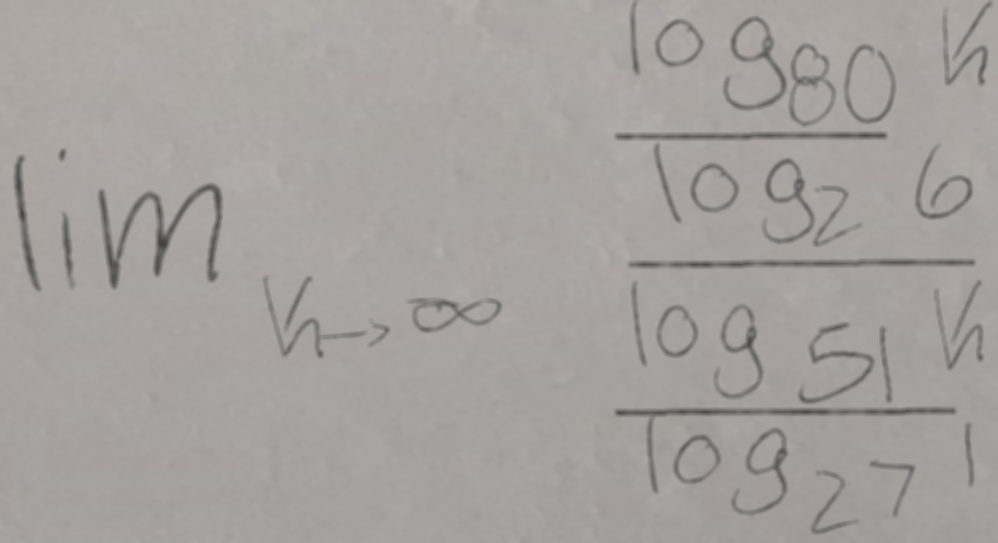 lim h→∞
log80 h
log2 6
log51 h
log27 1